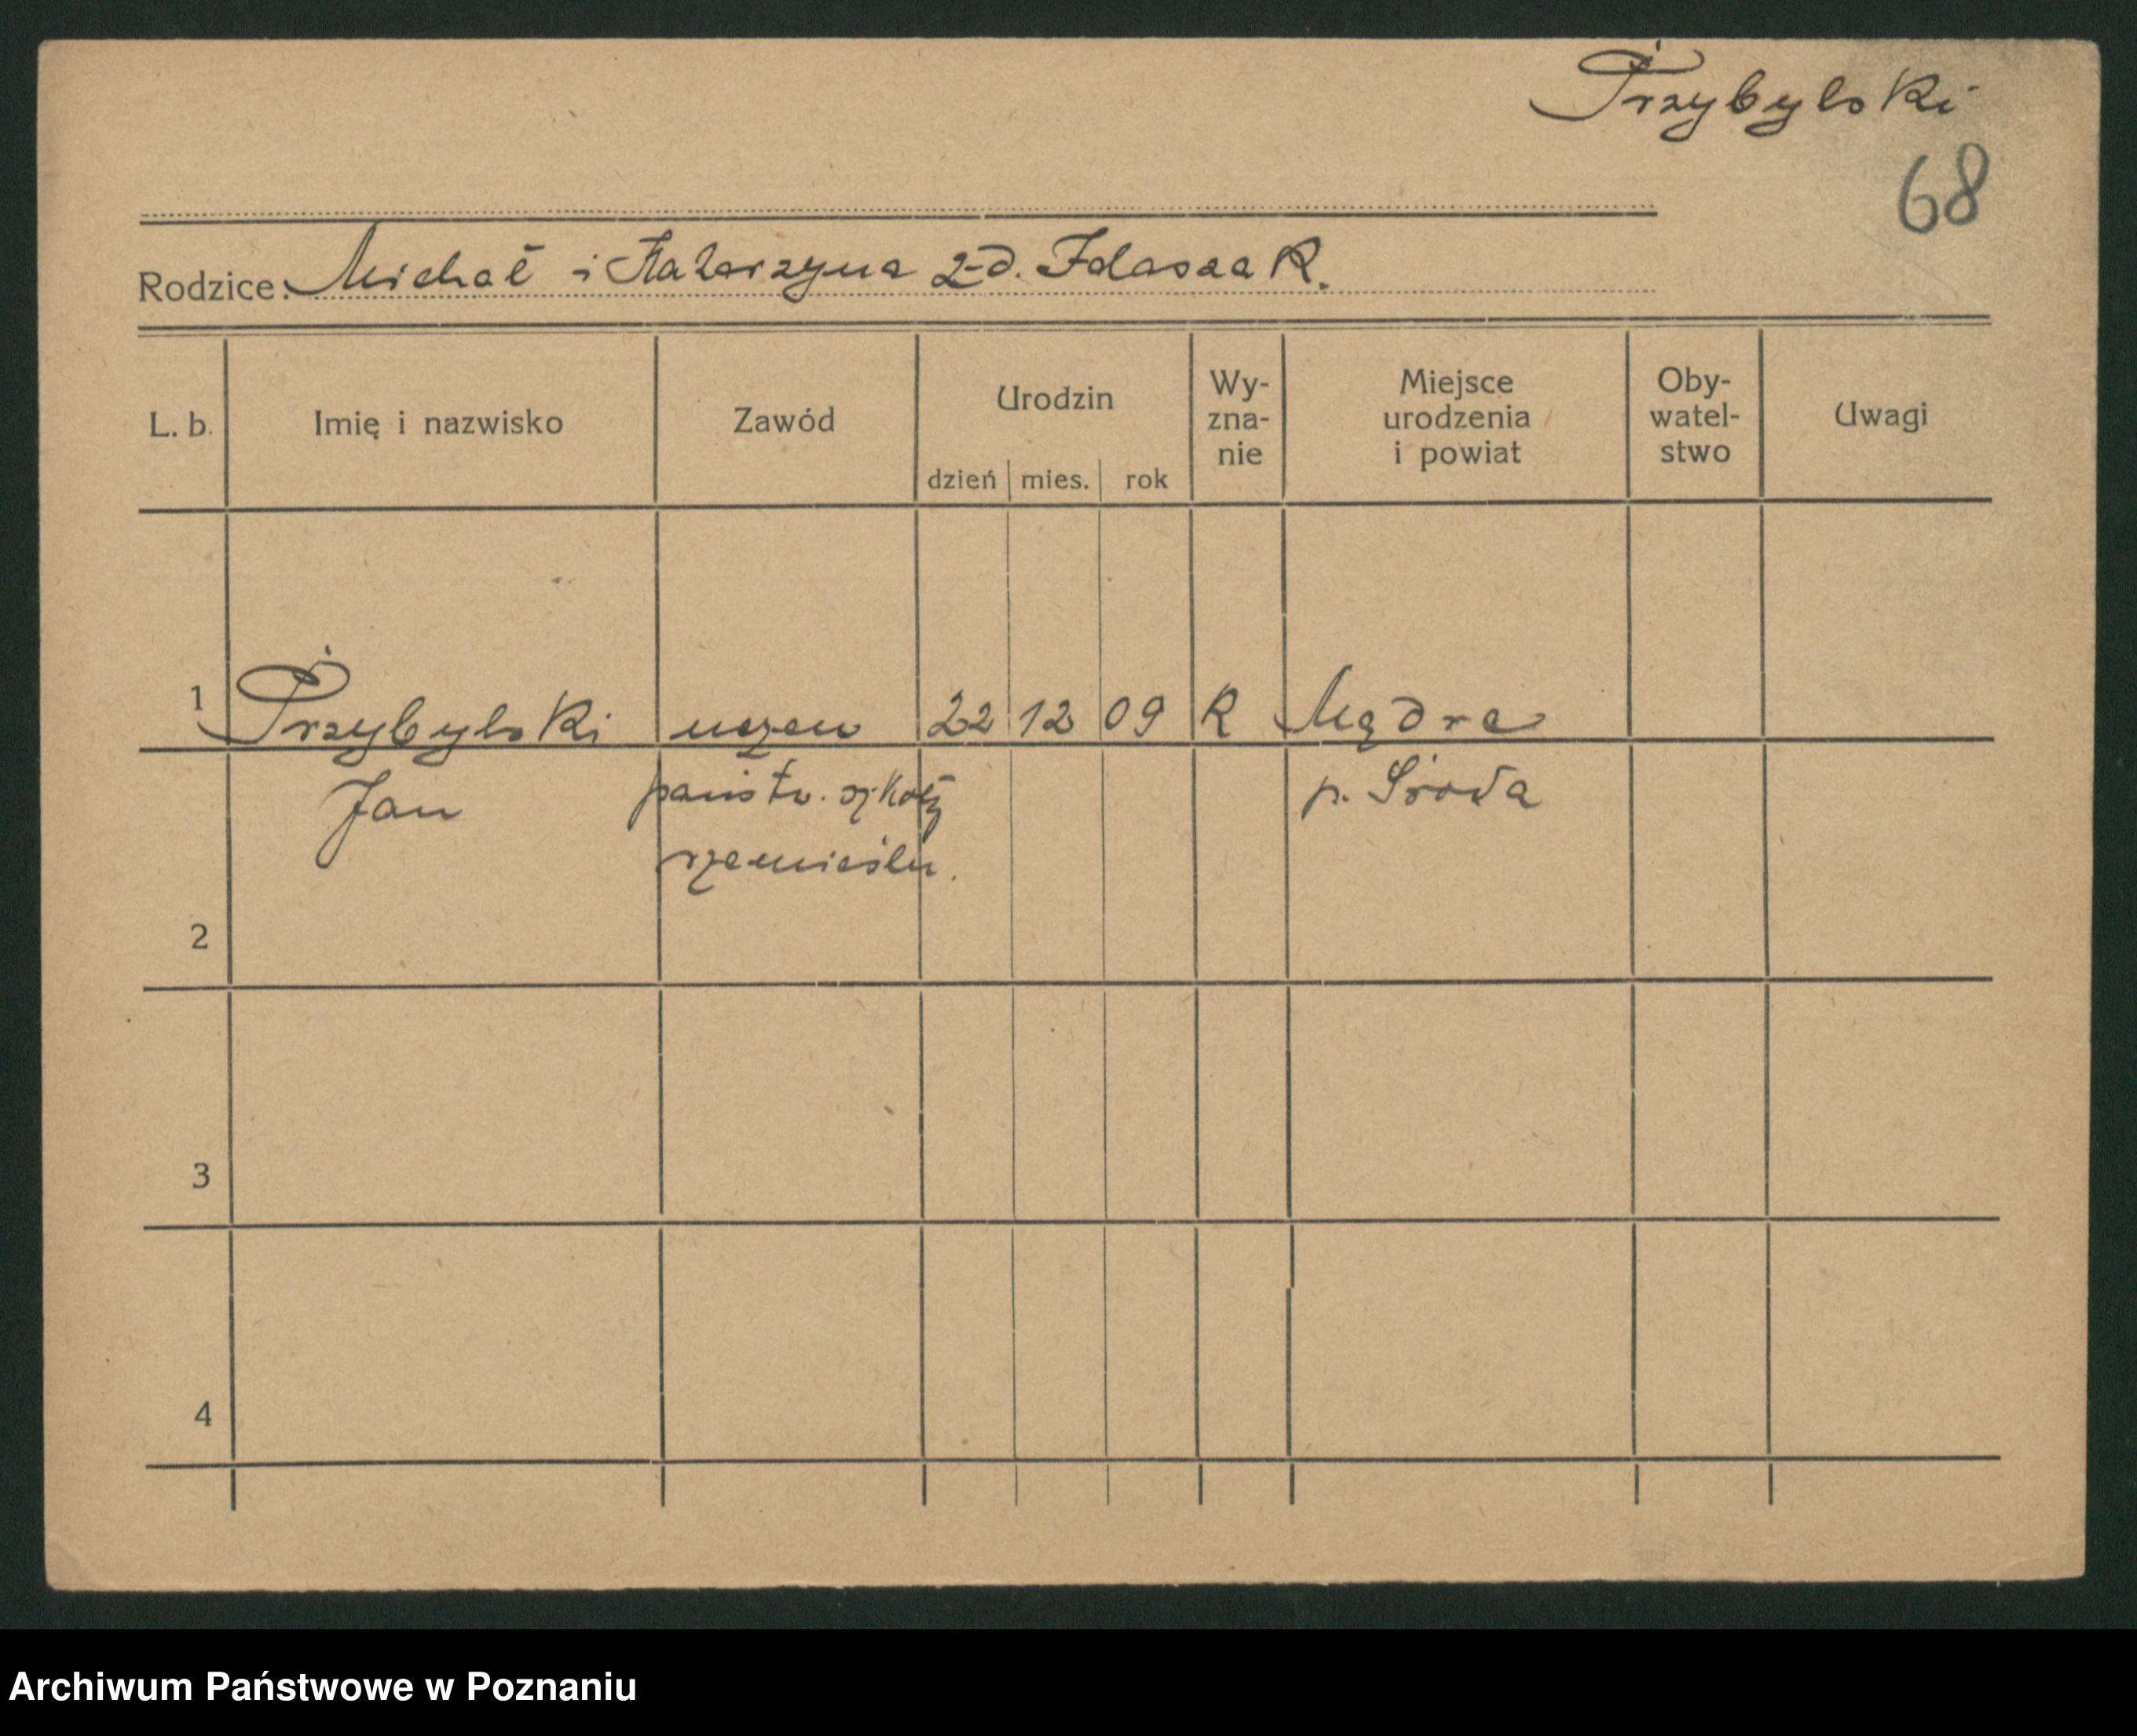 Przybylski
68
Rodzice: Michał i Katarzyna z-d. Idaszak.
L. b. Imię i nazwisko Zawód Urodzin dzień mies. rok Wy-zna-nie Miejsce urodzenia i powiat Oby-watel-stwo Uwagi
1 Przybylski uczeń 22 12 09 R Mądre
Jan państw. szkoły p. Środa
rzemieśln.
2
3
4
Archiwum Państwowe w Poznaniu